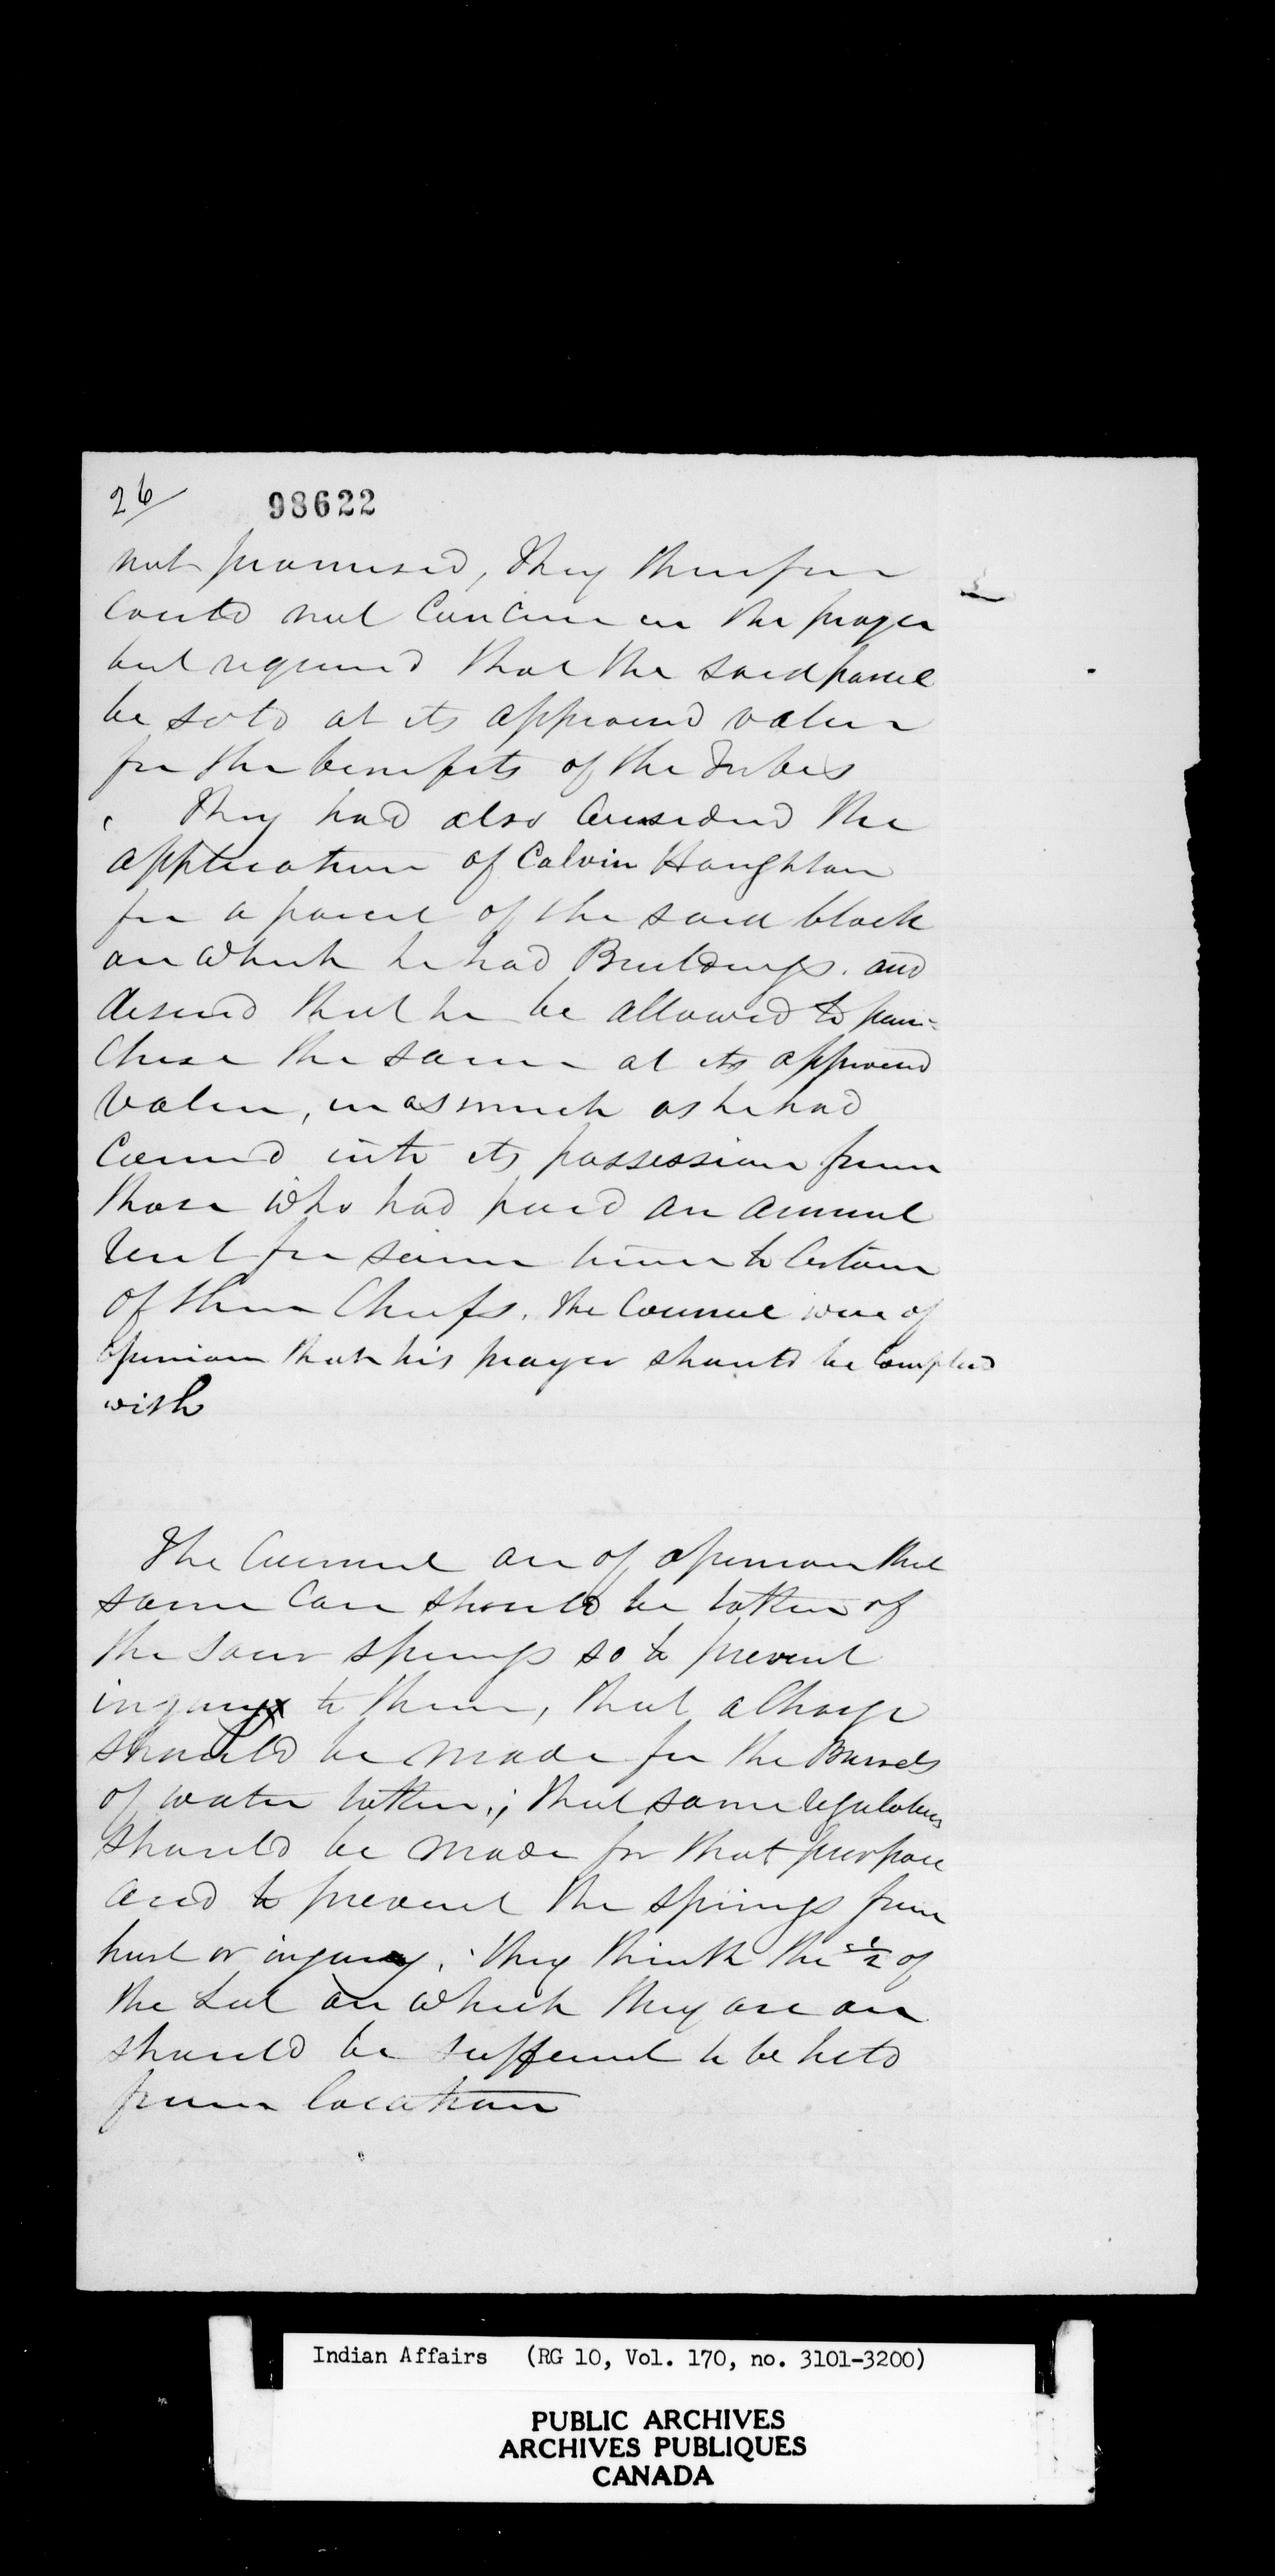 26/ 98622
not promised, they therefore
could not concur in the prayer
but required that the said parcel
be sold at its appraised value
for the benefits of the Tribes
They had also considered the
application of Calvin Houghton
for a parcel of the said block
on which he had Buildings. and
desired that he be allowed to pur-
chase the same at its appraised
value, in as much as he had
come into its possession from
those who had paid an annual
rent for some time to certain
of their Chiefs. The Council were of
opinion that his prayer should be complied
with
The Council are of opinion that
some care should be taken of
the sour springs so to prevent
injury to them, that a charge
should be made for the Barrels
of water taken; that some regulations
should be made for that purpose
and to prevent the springs from
hurt or injury. They think the 1/2 of
the Lot on which they are on
should be sufficient to be held
from location
Indian Affairs (RG 10, Vol. 170, no. 3101-3200)
PUBLIC ARCHIVES
ARCHIVES PUBLIQUES
CANADA